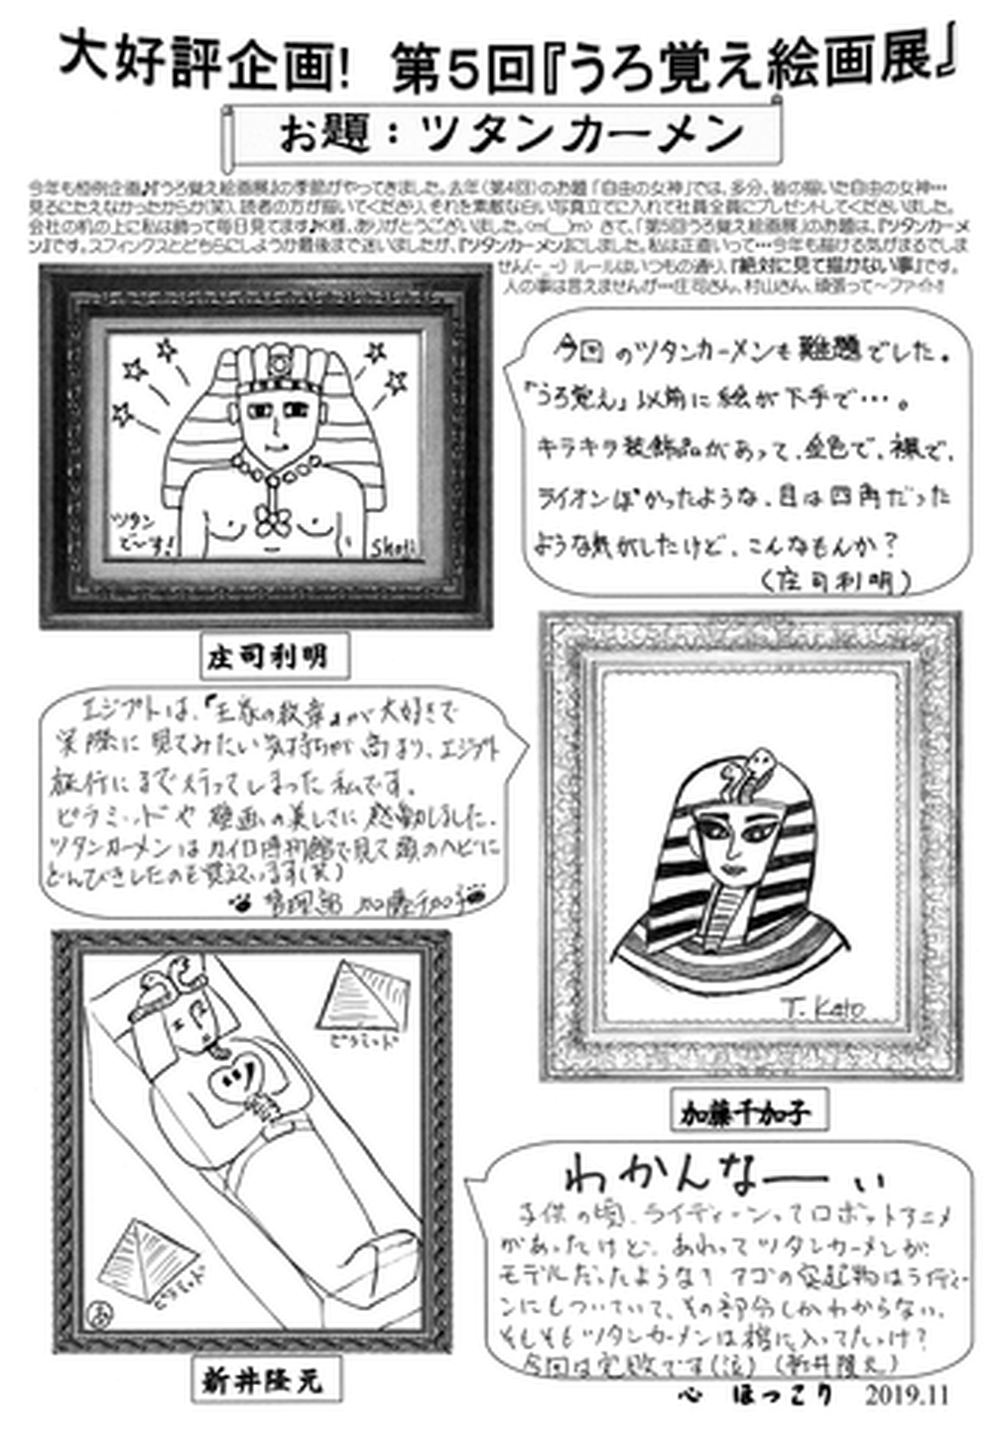 大好評企画! 第5回『うろ覚え絵画展』
お題：ツタンカーメン
今年も恒例企画♪『うろ覚え絵画展』の季節がやってきました。去年(第4回)のお題「自由の女神」では、多分、皆の描いた自由の女神…
見るにたえなかったからか(笑)、読者の方が描いてくださり、それを素敵な白い写真立てに入れて社員全員にプレゼントしてくださいました。
会社の机の上に私は飾って毎日見てます♪K様、ありがとうございました。<m(__)m> さて、「第5回うろ覚え絵画展」のお題は、『ツタンカーメ
ン』です。スフィンクスとどちらにしようか最後まで迷いましたが、『ツタンカーメン』にしました。私は正直いって…今年も描ける気がまるでしま
せん(-_-) ルールはいつもの通り、『絶対に見て描かない事』です。
人の事は言えませんが…庄司さん、村山さん、頑張って～ファイト!!
ツタン
で～す!
Shoji
今回のツタンカーメンも難題でした。
「うろ覚え」以前に絵が下手で…。
キラキラ装飾品があって、金色で、裸で、
ライオンぽかったような、目は四角だった
ような気がしたけど、こんなもんか？
(庄司利明)
庄司利明
エジプトは、『王家の紋章』が大好きで
実際に見てみたい気持ちが高まり、エジプト
旅行にまで行ってしまった私です。
ピラミッドや壁画の美しさに感動しました。
ツタンカーメンはカイロ博物館で見て頭のヘビに
どんびきしたのを覚えています(笑)
管理部 加藤千加子
T. Kato
加藤千加子
ピラミッド
ピラミッド
あ
新井隆元
わかんなーーぃ
子供の頃、ライディーンってロボットアニメ
があったけど、あれってツタンカーメンが
モデルだったような？ アゴの突起物はライディー
ンにもついていて、その部分しかわからない。
そもそもツタンカーメンは棺に入ってたっけ？
今回は完敗です(泣) (新井隆元)
心 ほっこり 2019.11